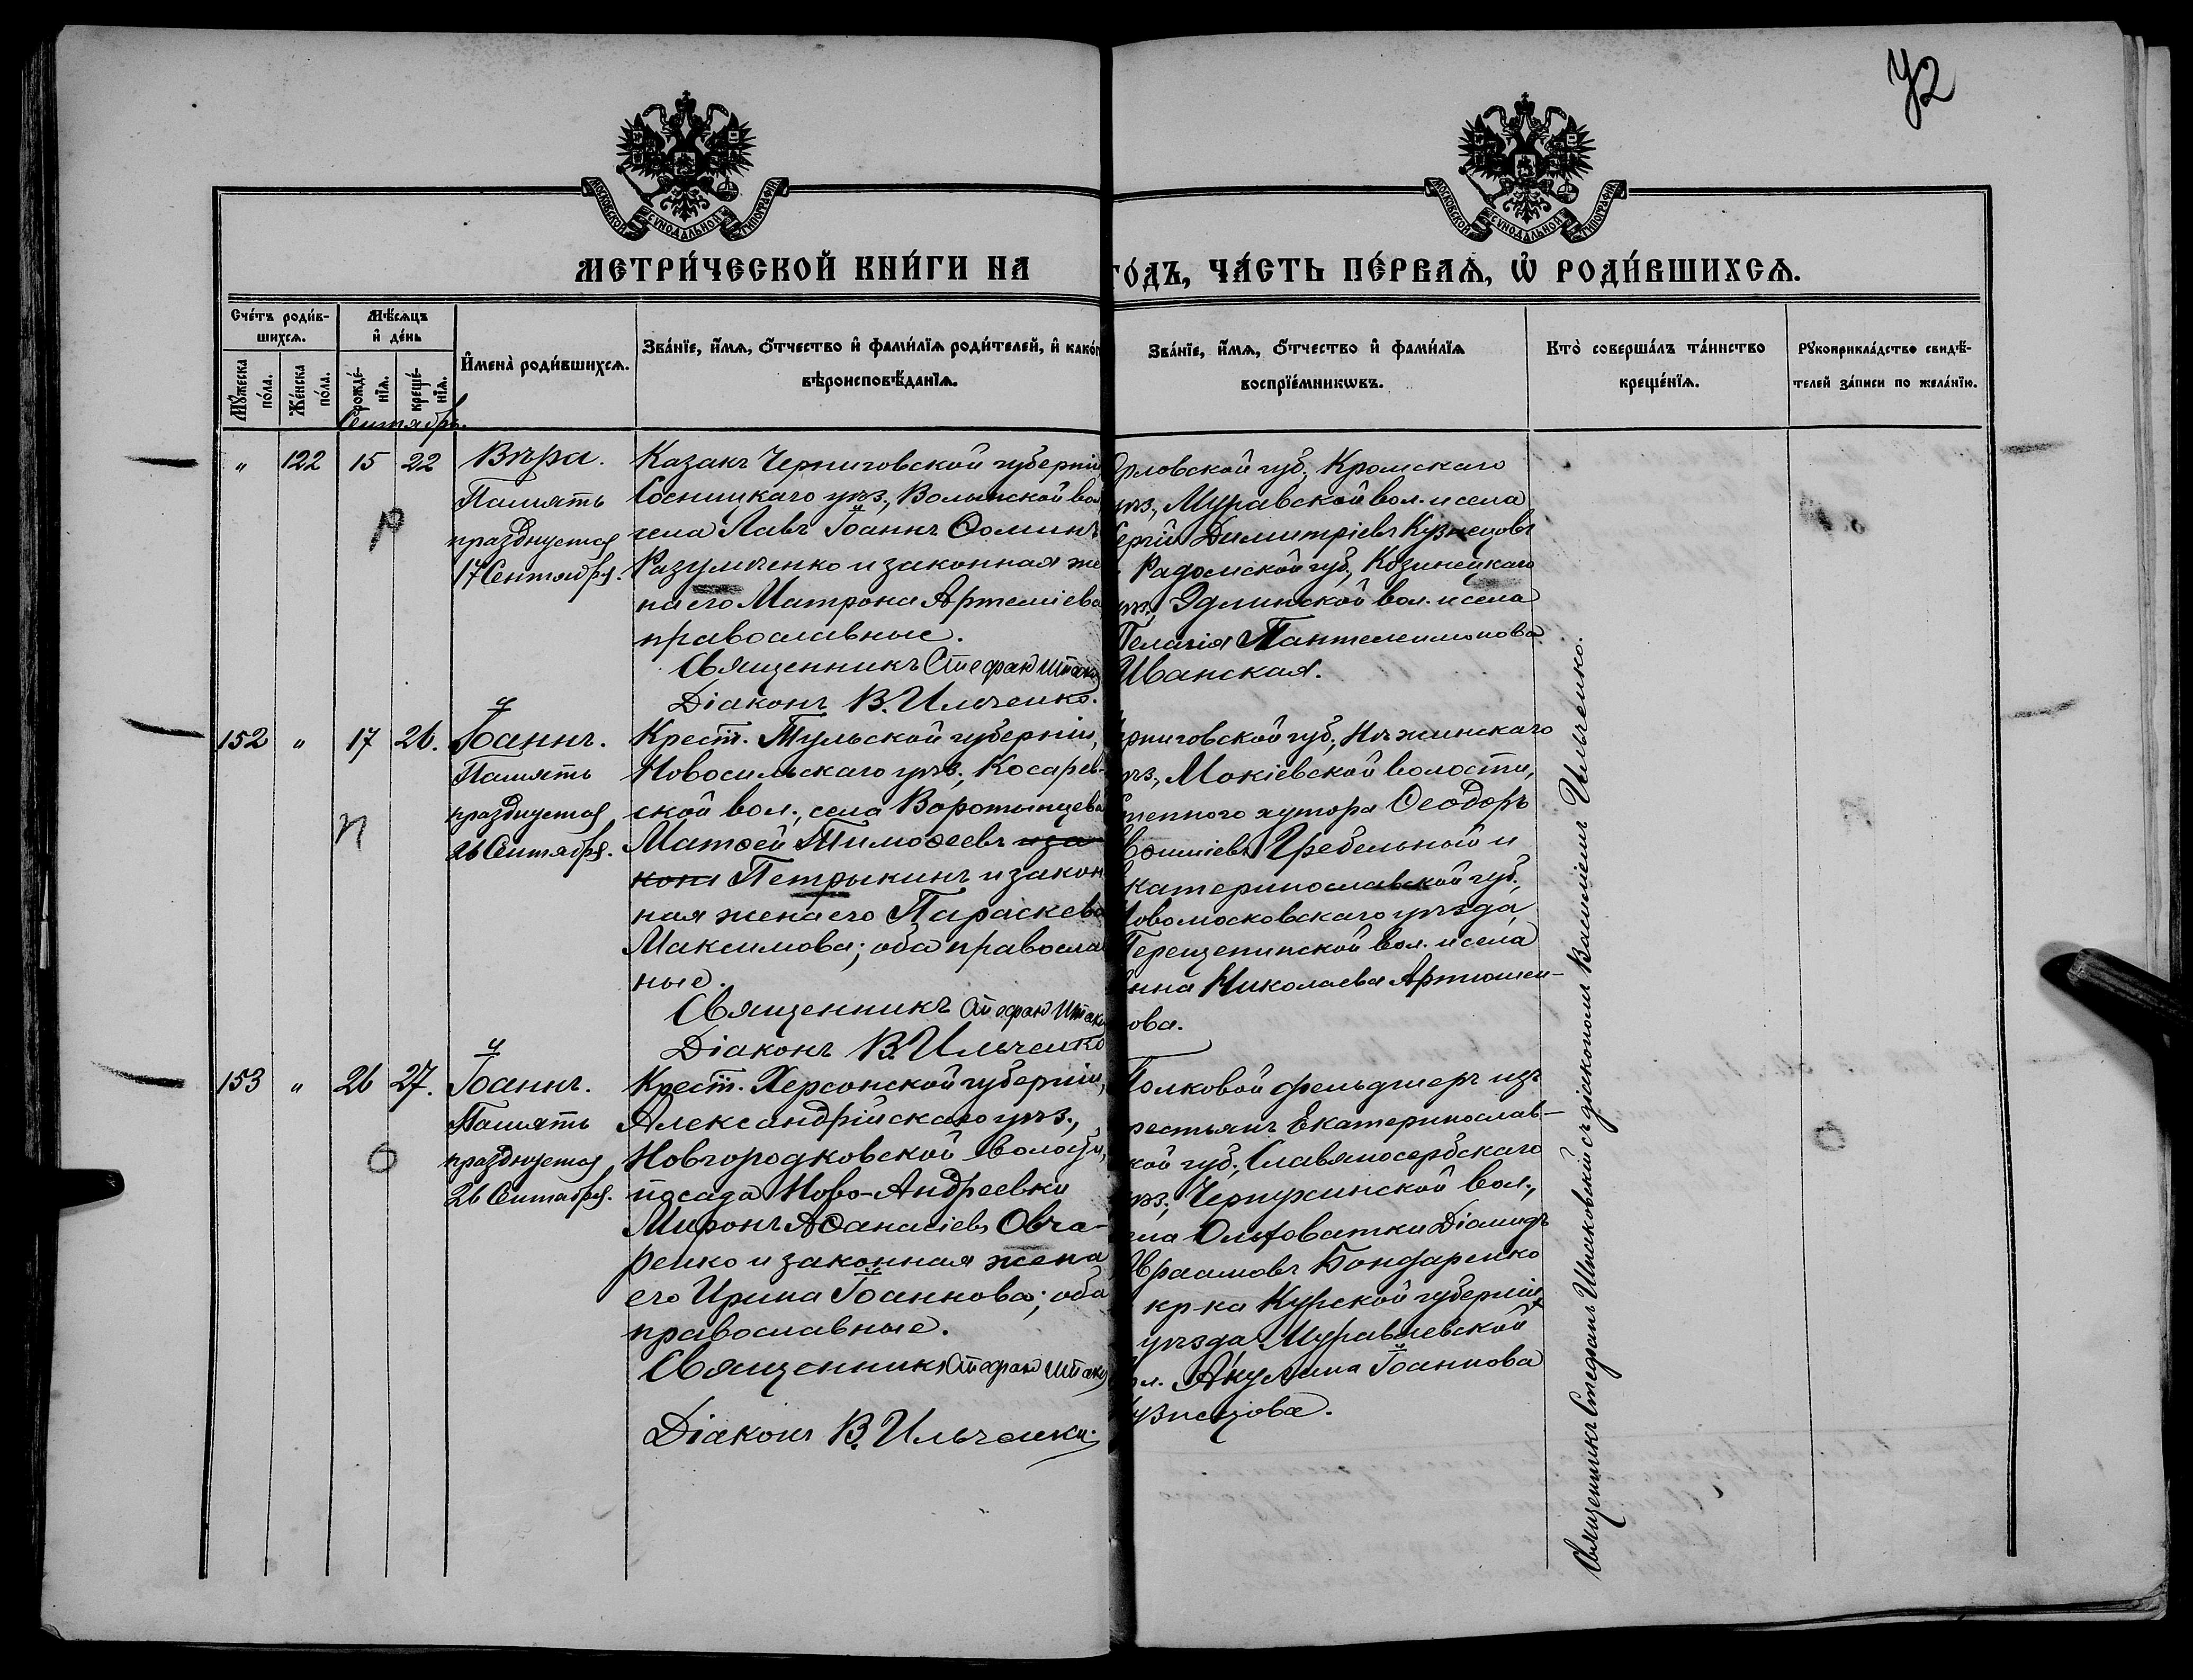 72
МОСКОВСКОЙ СѴНОДАЛЬНОЙ ТИПОГРАФІИ
МОСКОВСКОЙ СѴНОДАЛЬНОЙ ТИПОГРАФІИ
МЕТРИ́ЧЕСКОЙ КНИ́ГИ НА
ГО́ДЪ, ЧА́СТЬ ПЕ́РВАѦ, Ѡ҆ РОДИ́ВШИХСѦ.
Сче́тъ роди́в-
шихсѧ.
Мѣ́сѧцъ
и҆ де́нь
Мꙋ́жеска
по́ла.
Же́нска
по́ла.
рожде́-
нїѧ.
креще́-
нїѧ.
И҆мена̀ роди́вшихсѧ.
Зва́нїе, и҆́мѧ, ѻ҆́тчество и҆ фами́лїѧ роди́телей, и҆ како́г
вѣроисповѣ́данїѧ.
Зва́нїе, и҆́мѧ, ѻ҆́тчество и҆ фами́лїѧ
воспрїе́мникѡвъ.
Кто̀ соверша́лъ та́инство
креще́нїѧ.
Рꙋкоприкла́дство свидѣ́-
телей за́писи по жела́нїю.
Сентябрь.
„ 122 15 22
Вѣра.
Память
празднуется
17 Сентября.
Р
Казакъ Черниговской губерніи
Сосницкаго уѣз., Волынской вол
села Лавъ Іоаннъ Ѳоминъ
Разумченко и законная же
на его Матрона Артеміева
православные.
Священникъ Стефанъ Штако
Діаконъ В. Ильченко.
Орловской губ., Кромскаго
уѣз., Муравской вол. и села
Сергій Димитріевъ Кузнецовъ
Радомской губ., Козинецкаго
уѣз., Эдлинской вол. и села
Пелагія Пантелеимонова
Иванская.
152 „ 17 26.
Іоаннъ.
Память
празднуется
26 Сентября.
П
Крест. Тульской губерніи,
Новосильскаго уѣз., Косарев-
ской вол., села Воротынцева
Матѳей Тимоѳеевъ и за
кон Петрыкинъ и закон
ная жена его Параскева
Максимова; оба православ
ные.
Священникъ Стефанъ Штако
Діаконъ В. Ильченко
ерниговской губ., Нѣжинскаго
уѣз., Мокіевской волости,
хутора Ѳеодоръ
Гребельной и
катеринославской губ.,
Новомосковскаго уѣзда,
вол. и села
Анна Николаева Артюшен-
кова.
153 „ 26 27.
Іоаннъ.
Память
празднуется
26 Сентября.
О
Крест. Херсонской губерніи,
Александрійскаго уѣз.,
Новгородковской волости,
посада Ново-Андреевки
Миронъ Аѳанасіевъ Овча-
ренко и законная жена
его Ирина Іоаннова; оба
православные.
Священникъ Стефанъ Штако
Діаконъ В. Ильченко
Полковой фельдшеръ изъ
крестьянъ Екатеринослав-
кой губ., Славяносербскаго
уѣз., Чернухинской вол.,
села Ольховатки Діомидъ
Авраамовъ Бондаренко
кр-ка Курской губерніи
уѣзда Муравлевской
вол. Акулина Іоаннова
Кузнецова.
Священникъ Стефанъ Штаковскій съ діакономъ Василіемъ Ильченко.